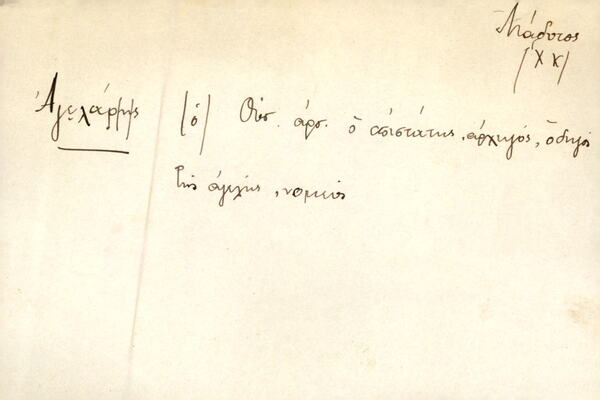 Μάδυτος
(Χ Κ)
Ἀγελάρης (ὁ) Οὐσ. ἀρσ. ὁ ἐπιστάτης, ἀρχηγός, ὁδηγός
τῆς ἀγέλης, νομεύς